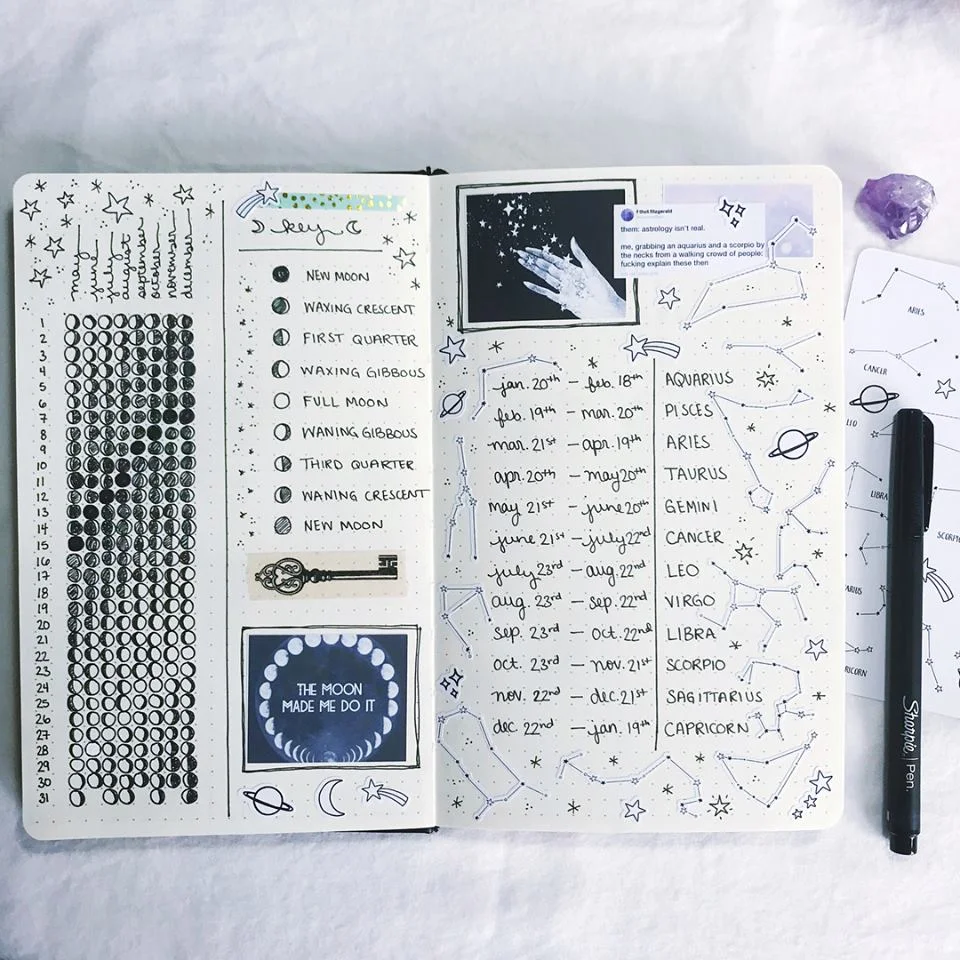 may
june
july
august
september
october
november
december
1
2
3
4
5
6
7
8
9
10
11
12
13
14
15
16
17
18
19
20
21
22
23
24
25
26
27
28
29
30
31
key
NEW MOON
WAXING CRESCENT
FIRST QUARTER
WAXING GIBBOUS
FULL MOON
WANING GIBBOUS
THIRD QUARTER
WANING CRESCENT
NEW MOON
THE MOON
MADE ME DO IT
F thot fitzgerald
them: astrology isn't real.
me, grabbing an aquarius and a scorpio by
the necks from a walking crowd of people:
fucking explain these then
jan. 20th - feb. 18th AQUARIUS
feb. 19th - mar. 20th PISCES
mar. 21st - apr. 19th ARIES
apr. 20th - may 20th TAURUS
may 21st - june 20th GEMINI
june 21st - july 22nd CANCER
july 23rd - aug. 22nd LEO
aug. 23rd - sep. 22nd VIRGO
sep. 23rd - oct. 22nd LIBRA
oct. 23rd - nov. 21st SCORPIO
nov. 22nd - dec. 21st SAGITTARIUS
dec. 22nd - jan. 19th CAPRICORN
ARIES
CANCER
LEO
LIBRA
SCORPIO
ARIUS
RICORN
Sharpie. Pen.